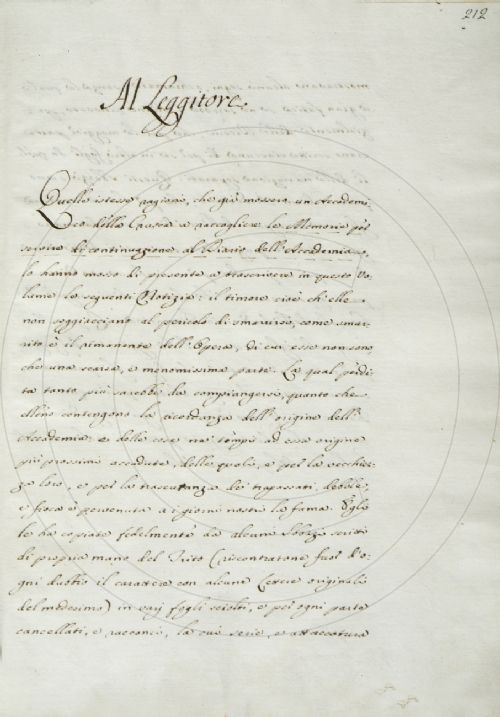 212
Al Leggitore.
Quelle istesse ragioni, che già mossero un Accademi
co della Crusca a raccogliere le Memorie per
servire di continuazione al Diario dell'Accademia,
lo hanno mosso di presente a trascrivere in questo Vo
lume le seguenti Notizie: il timore cioè ch'elle
non soggiacciano al pericolo di smarirsi, come smar
rito è il rimanente dell'Opera, di cui esse non sono,
che una scarsa, e menomissima parte. La qual pèrdi
ta tanto più sarebbe da compiangersi, quanto che
elleno contengono la ricordanza dell'origine dell'
Accademia, e delle cose ne' tempi ad essa origine
più prossimi accadute, delle quali, e per la vecchiez
za loro, e per la trascuranza de' trapassati, debole,
e fioca è pervenuta a i giorni nostri la fama. Egli
le ha copiate fedelmente da alcuni sbozzi scritti
di propria mano del Trito (riscontratone fuor d'o
gni dubbio il carattere con alcune Cerce originali
del medesimo) in varj fogli sciolti, e per ogni parte
cancellati, e racconci, la cui serie, e attaccatura